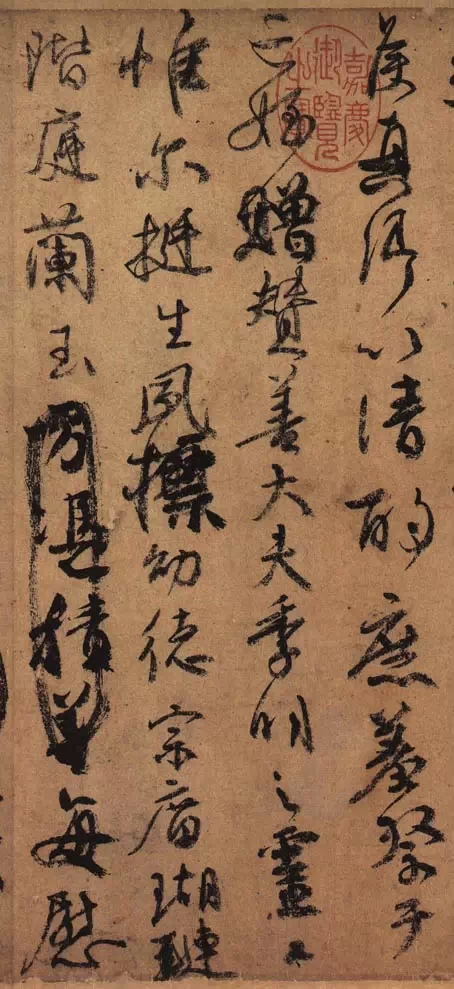 侯真卿以清酌庶羞祭于
亡姪贈贊善大夫季明之靈曰
惟尔挺生夙標幼德宗庿瑚璉
階庭蘭玉方憑積善每慰
嘉慶
御覽
之寶